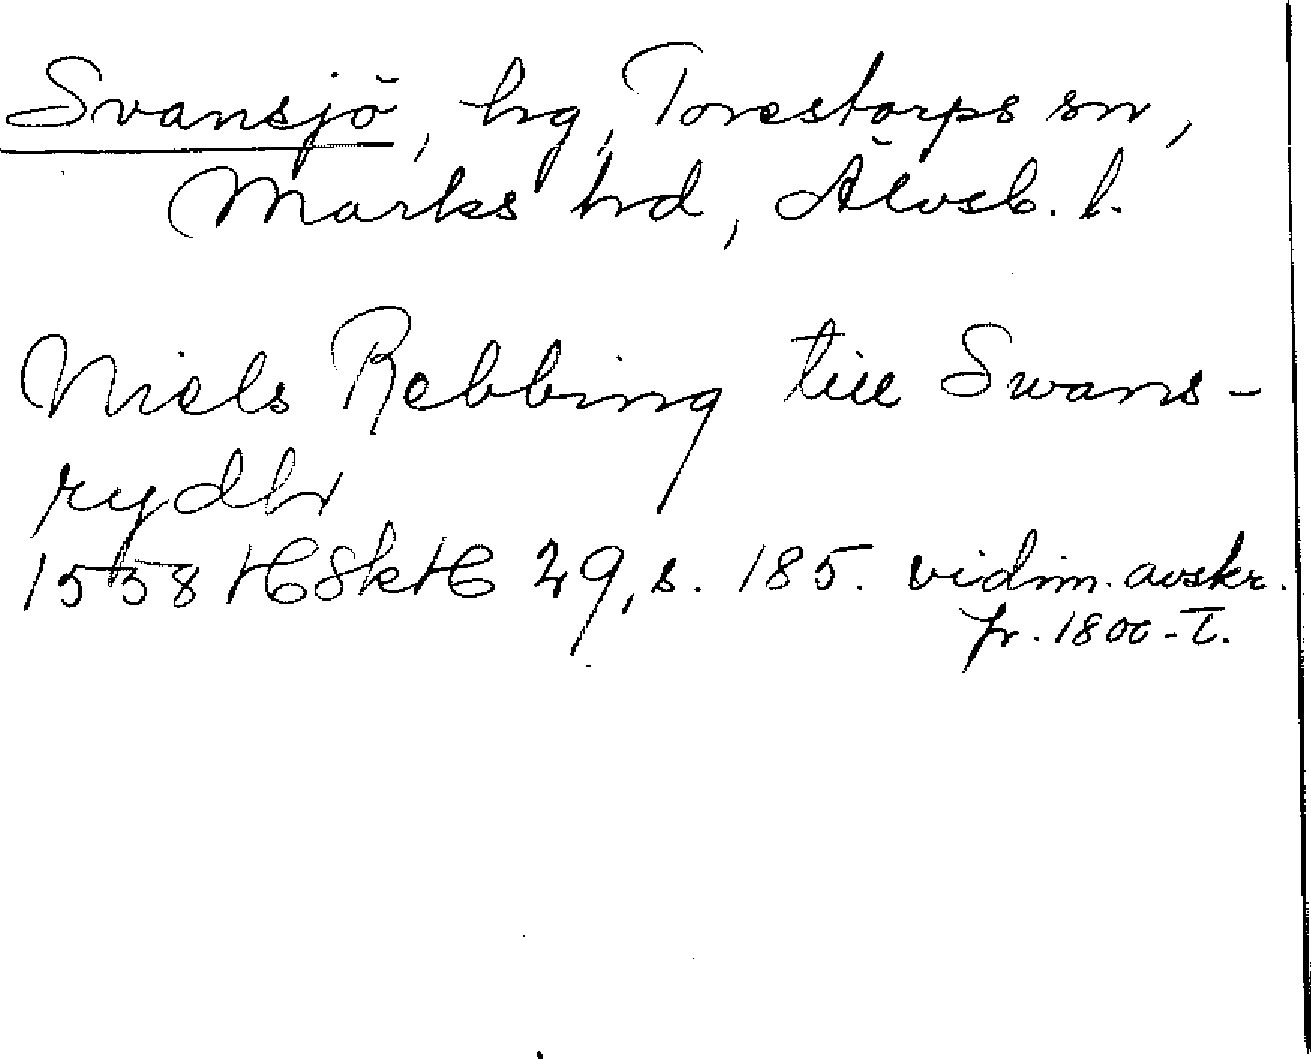 Svansjö, hg, Torestorps sn,
Marks hd, Älvsb. l.
Niels Rebbing till Swans-
rydh
1558 HSkH 29, s. 185. vidim. avskr.
fr. 1800-t.